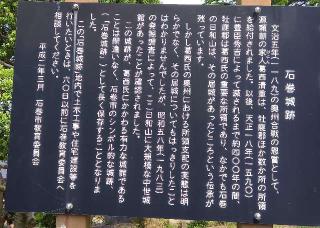 石巻城跡
文治五年(一一八九)の奥州合戦の恩賞として、
源頼朝の家人葛西清重は、牡鹿郡ほか数か所の所領
を給付されました。以後、天正一八年(一五九〇)
に豊臣秀吉によって滅されるまで約四〇〇年の間、
牡鹿郡は葛西氏の重要な所領であり、なかでも石巻
の日和山は、その居城があったところという伝承が
残っています。
しかし葛西氏の奥州における所領支配の実態は明
らかでなく、その居城についてもはっきりしたこと
はわかりませんでしたが、昭和五八年(一九八三)
の発掘調査によって、ここ日和山に大規模な中世城
館のあったことが確認されました。
この城が、葛西氏にかかわる有力な城館である
ことは間違いなく、石巻市のシンボル的な城跡
(石巻城跡)として長く保存することとなりま
した。
「この石巻城跡」地内で土木工事や住宅建設等を
行いたいときは、六〇日以前に石巻市教育委員会へ
相談してください。
平成二年三月 石巻市教育委員会